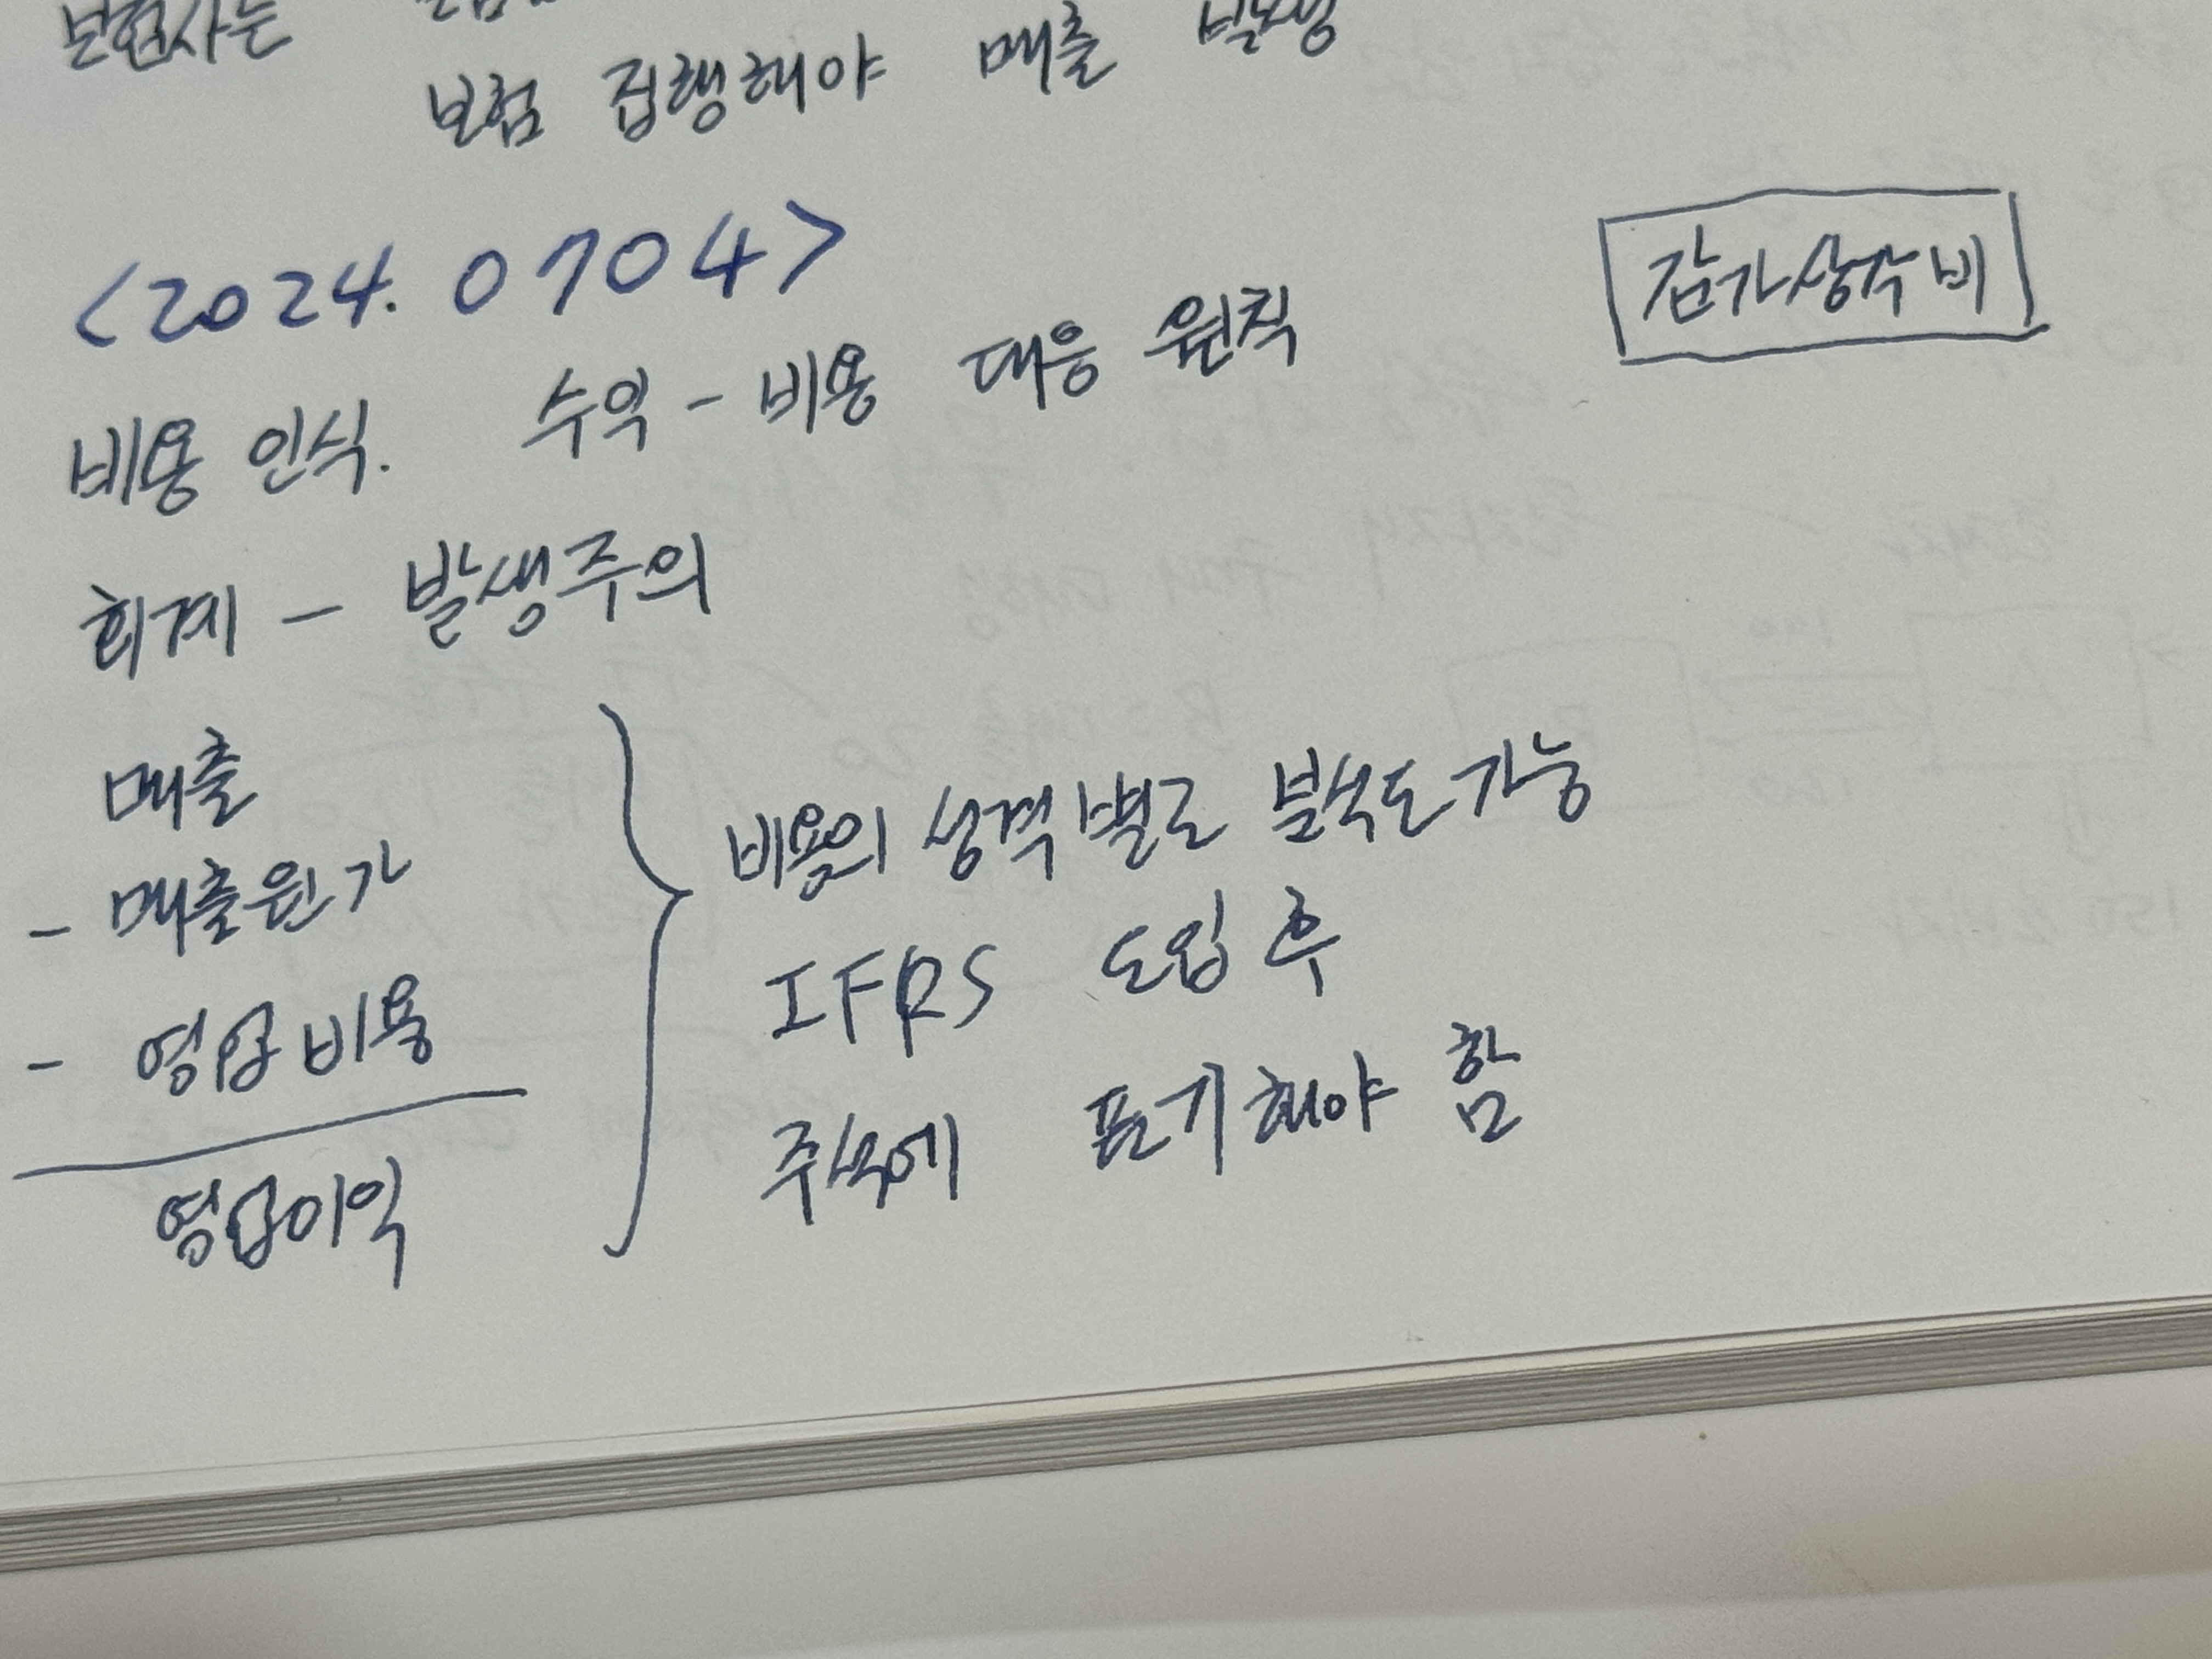 보험사는
보험 집행해야 매출 발생
<2024. 0704>
감가상각비
비용 인식. 수익 - 비용 대응 원칙
회계 - 발생주의
매출
- 매출원가
- 영업비용
영업이익
비용의 성격별로 분석도 가능
IFRS 도입 후
주석에 표기해야 함